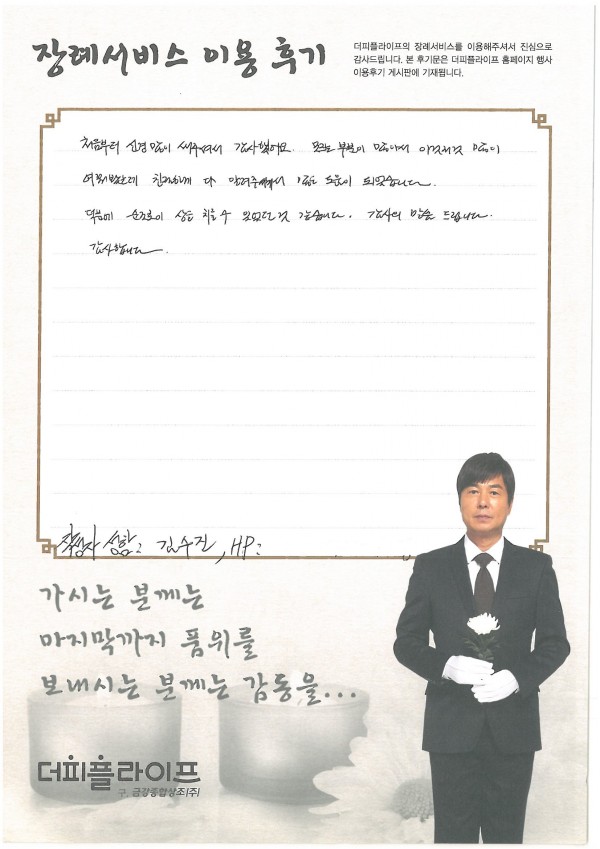 장례서비스 이용 후기
더피플라이프의 장례서비스를 이용해주셔서 진심으로
감사드립니다. 본 후기문은 더피플라이프 홈페이지 행사
이용후기 게시판에 기재됩니다.
처음부터 신경 많이 써주셔서 감사했어요. 모르는 부분이 많아서 이것저것 많이
여쭤봤는데 친절하게 다 알려주셔서 정말 도움이 되었습니다.
덕분에 순조로이 상을 치를 수 있었던것 같습니다. 감사의 말씀 드립니다.
감사합니다.
작성자 성함: 김수진, HP:
가시는 분께는
마지막까지 품위를
보내시는 분께는 감동을...
더피플라이프
구. 금강종합상조(주)